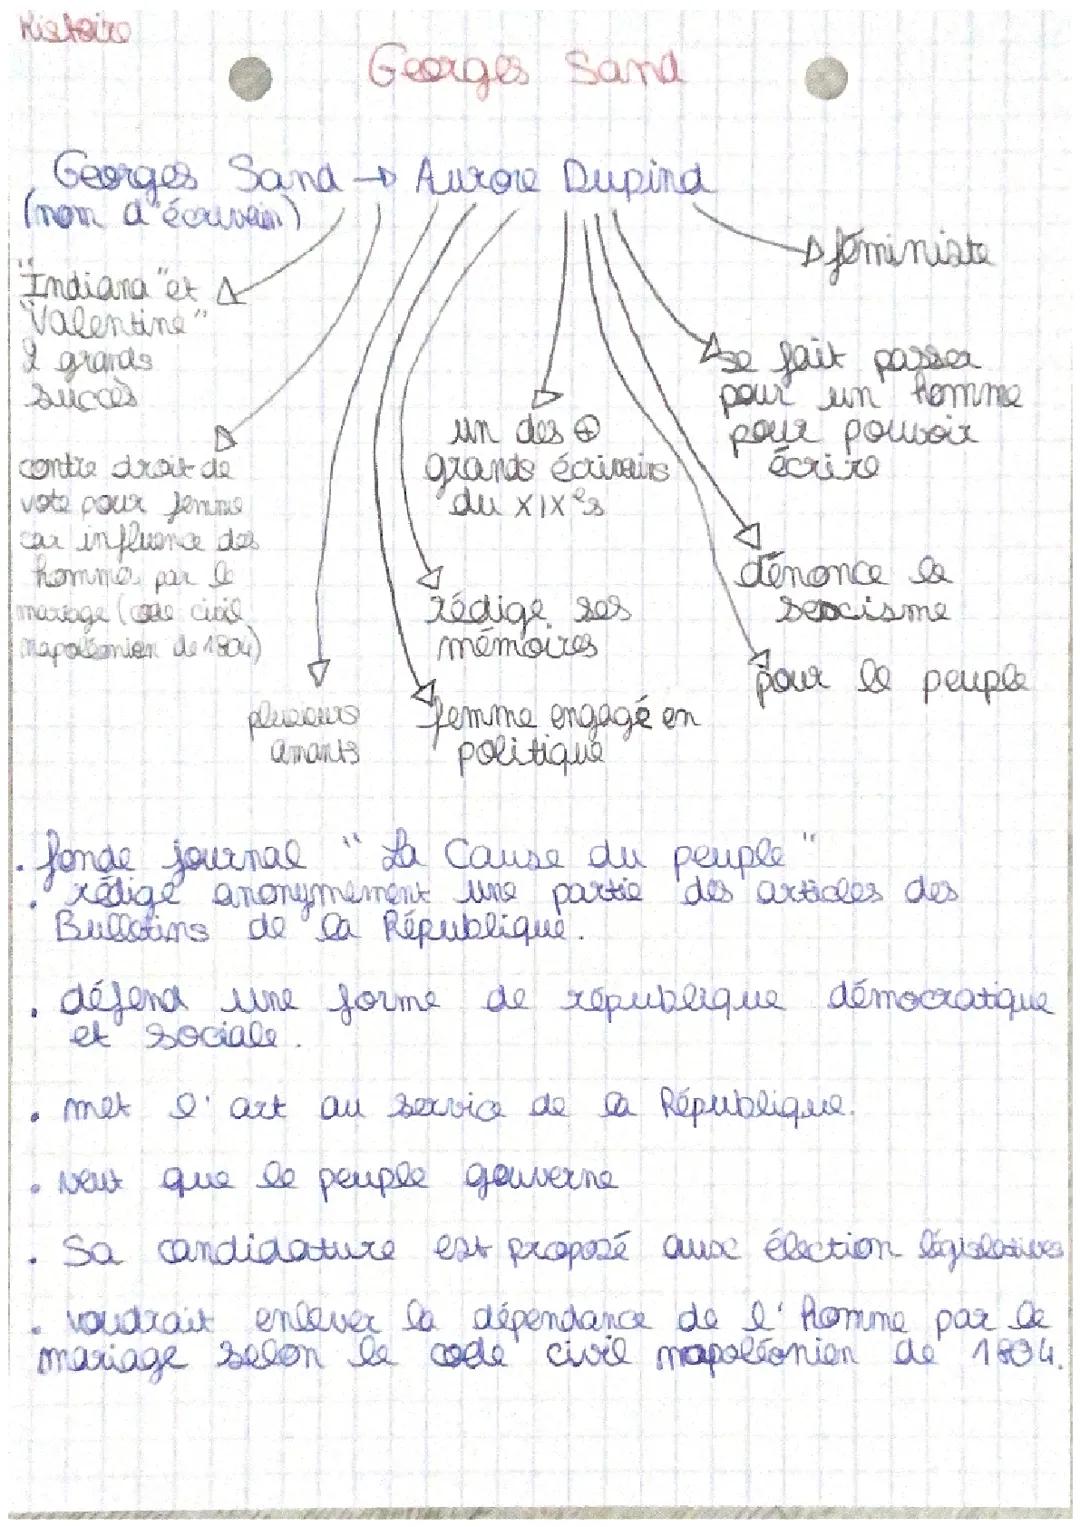 Histoire
Georges Sand
Georges Sand → Aurore Dupind
(nom d'écrivain)
féministe
"Indiana" et
"Valentine"
2 grands
succès
se fait passer
pour un homme
pour pouvoir
écrire
un des ⊕
grands écrivains
du XIXes
contre droit de
vote pour femme
car influence des
homme par le
mariage (code civil
napoléonien de 1804)
dénonce le
sexcisme
rédige ses
mémoires
pour le peuple
plusieurs
amants
femme engagé en
politique
. fonde journal "La Cause du peuple"
. rédige anonymement une partie des articles des
Bulletins de la République.
. défend une forme de république démocratique
et sociale.
. met l'art au service de la République.
. veut que le peuple gouverne
. Sa candidature est proposé aux élection législatives
. voudrait enlever la dépendance de l'homme par le
mariage selon le code civil napoléonien de 1804.